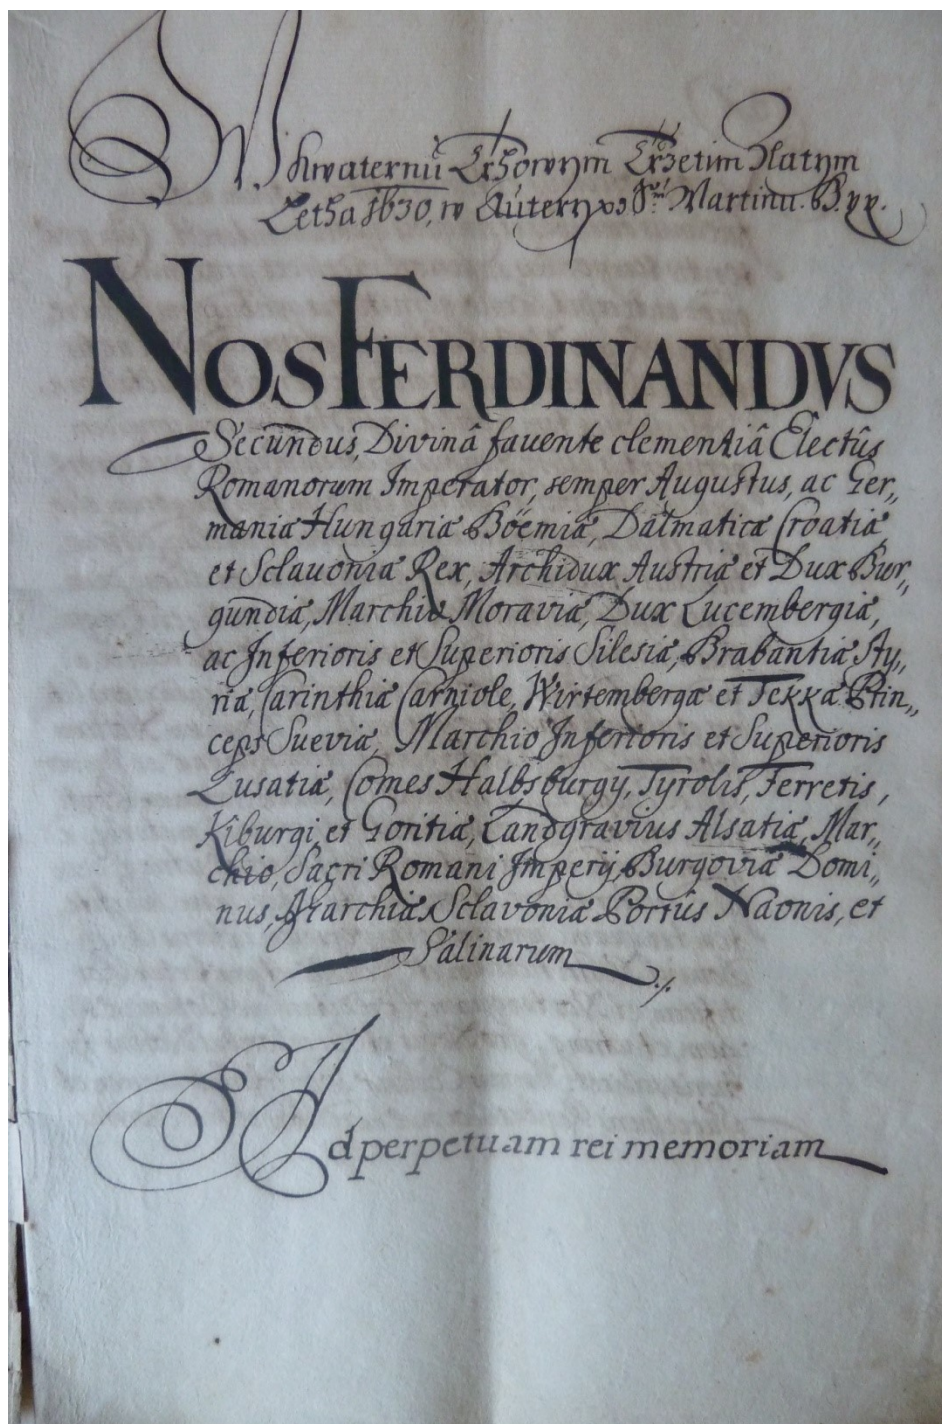 W kwaternu Trhowym Trzetim Zlatym
Letha 1630, w Autery po Sm̃ Martinu. B. yy.
NOS FERDINANDVS
Secundus, Divinâ favente clementiâ Electûs
Romanorum Imperator, semper Augustus, ac Ger„
maniæ Hungariæ Böemiæ, Dalmaticæ Croatiæ
et Sclauoniæ Rex, Archidux Austriæ et Dux Bur„
gundiæ, Marchio Moraviæ, Dux Lucembergiæ,
ac Inferioris et Superioris Silesiæ, Brabantiæ Sty„
riæ, Carinthiæ Carniole, Wirtembergæ et Tekkæ Prin„
ceps Sueviæ, Marchio Inferioris et Superioris
Lusatiæ, Comes Halbsburgy, Tyrolis, Ferretis,
Kiburgi, et Goritiæ, Landgravius Alsatiæ, Mar„
chio, Sacri Romani Imperij, Burgoviæ Domi„
nus, Marchiæ Sclavoniæ Portûs Naonis, et
Salinarum
Ad perpetuam rei memoriam